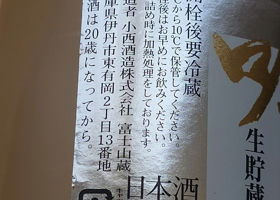 開栓後要冷蔵
℃から10℃で保管してください。
栓後はお早めにお飲みください。
詰め時に加熱処理をしております。
造者 小西酒造株式会社 富士山蔵
庫県伊丹市東有岡2丁目13番地
酒は20歳になってから。
生貯蔵
日本酒